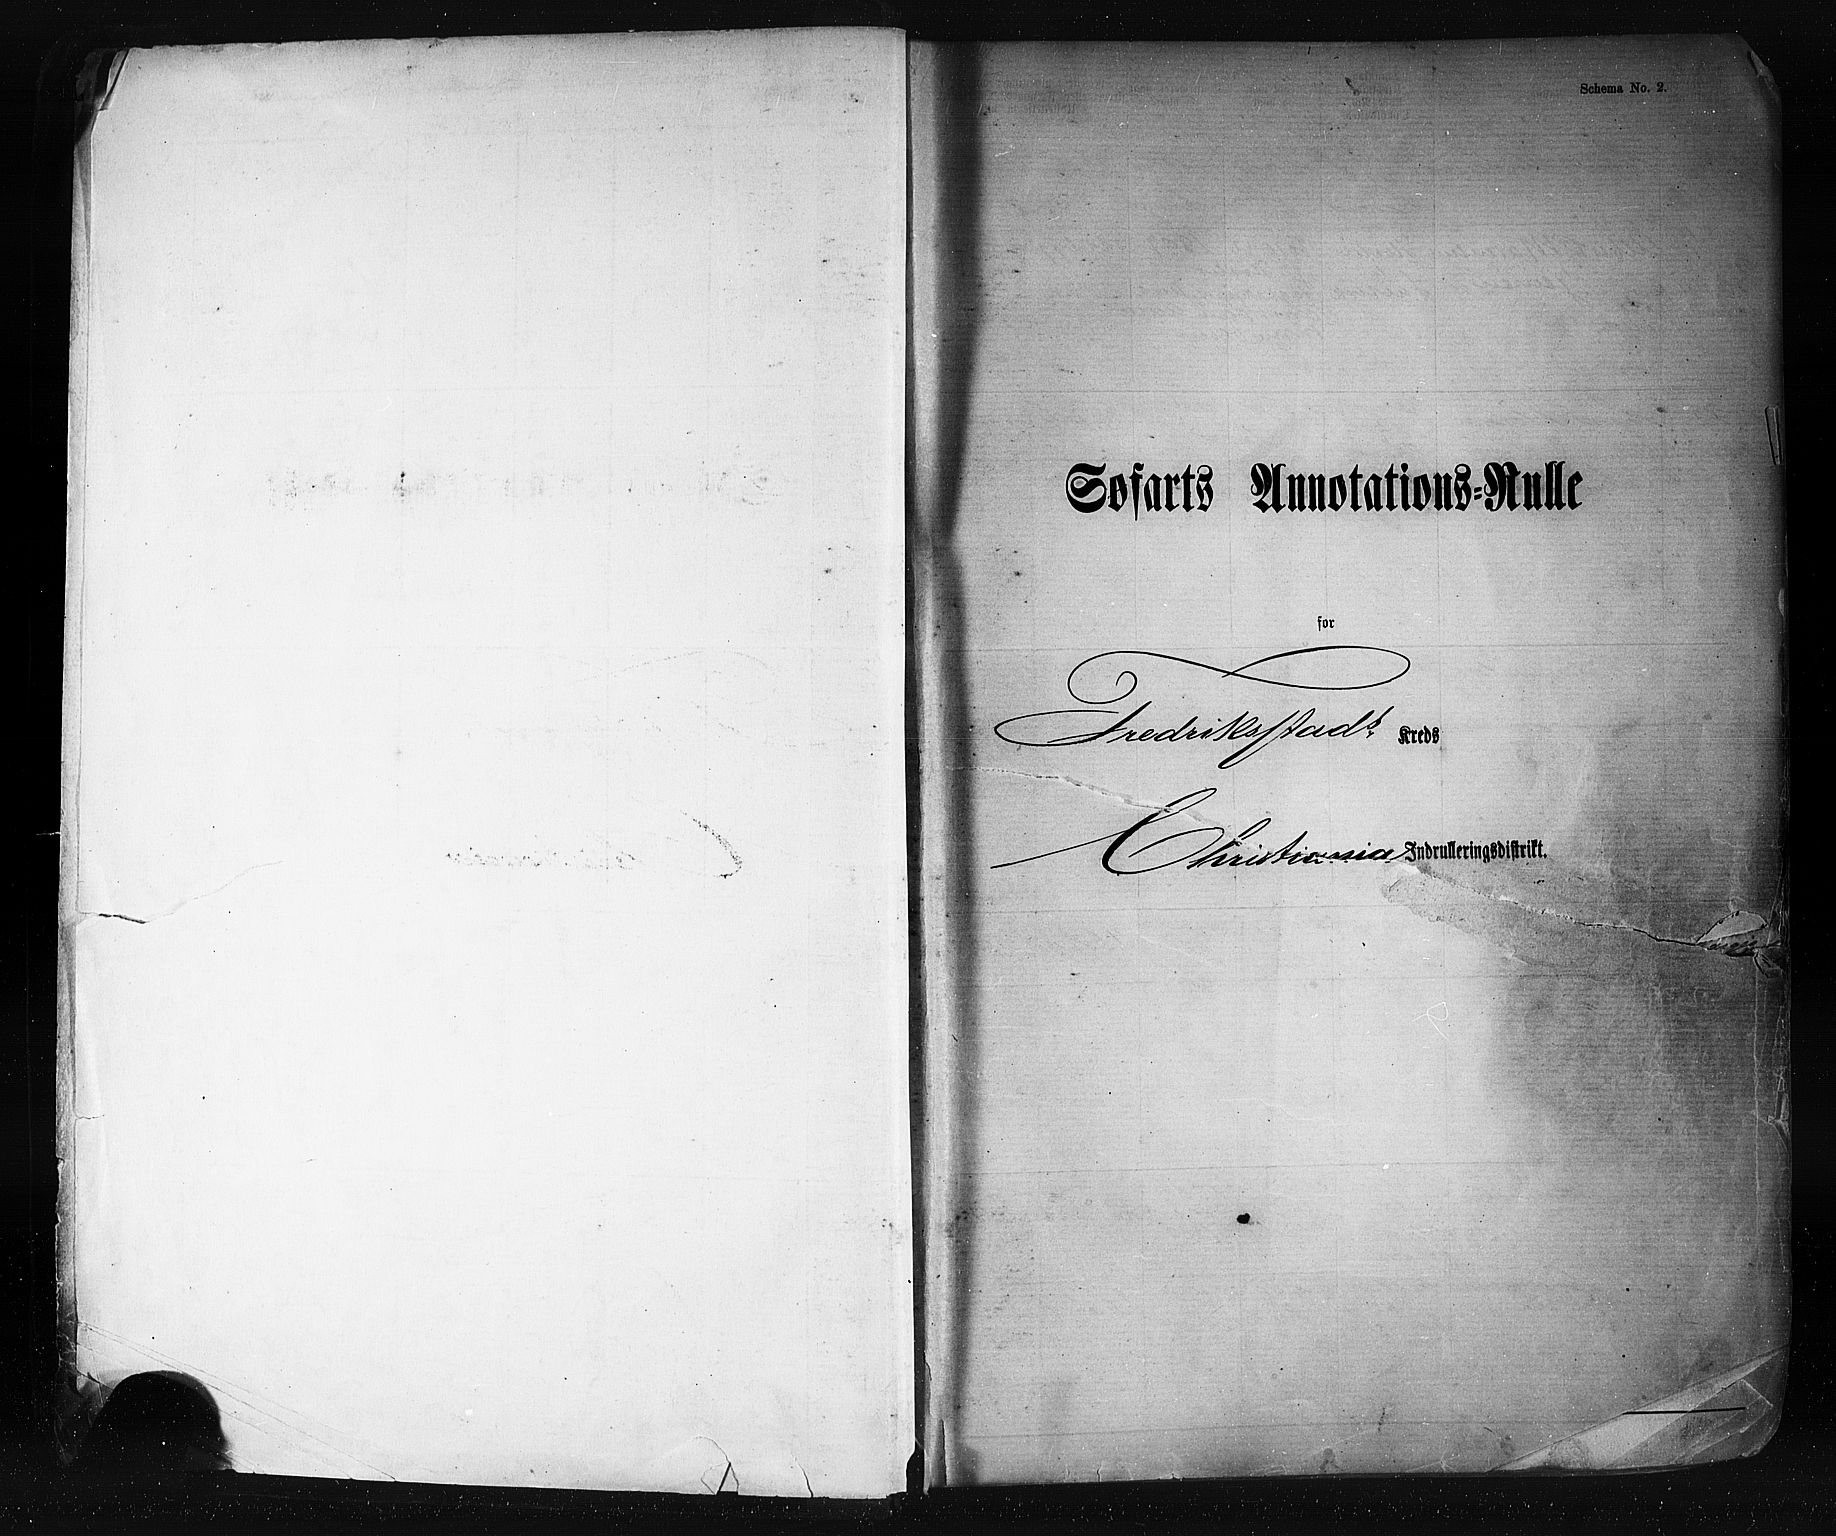 Schema No. 2.
Søfarts Annotations-Rulle
for
Fredriksstads Kreds
Christiania Indrulleringsdistrikt.